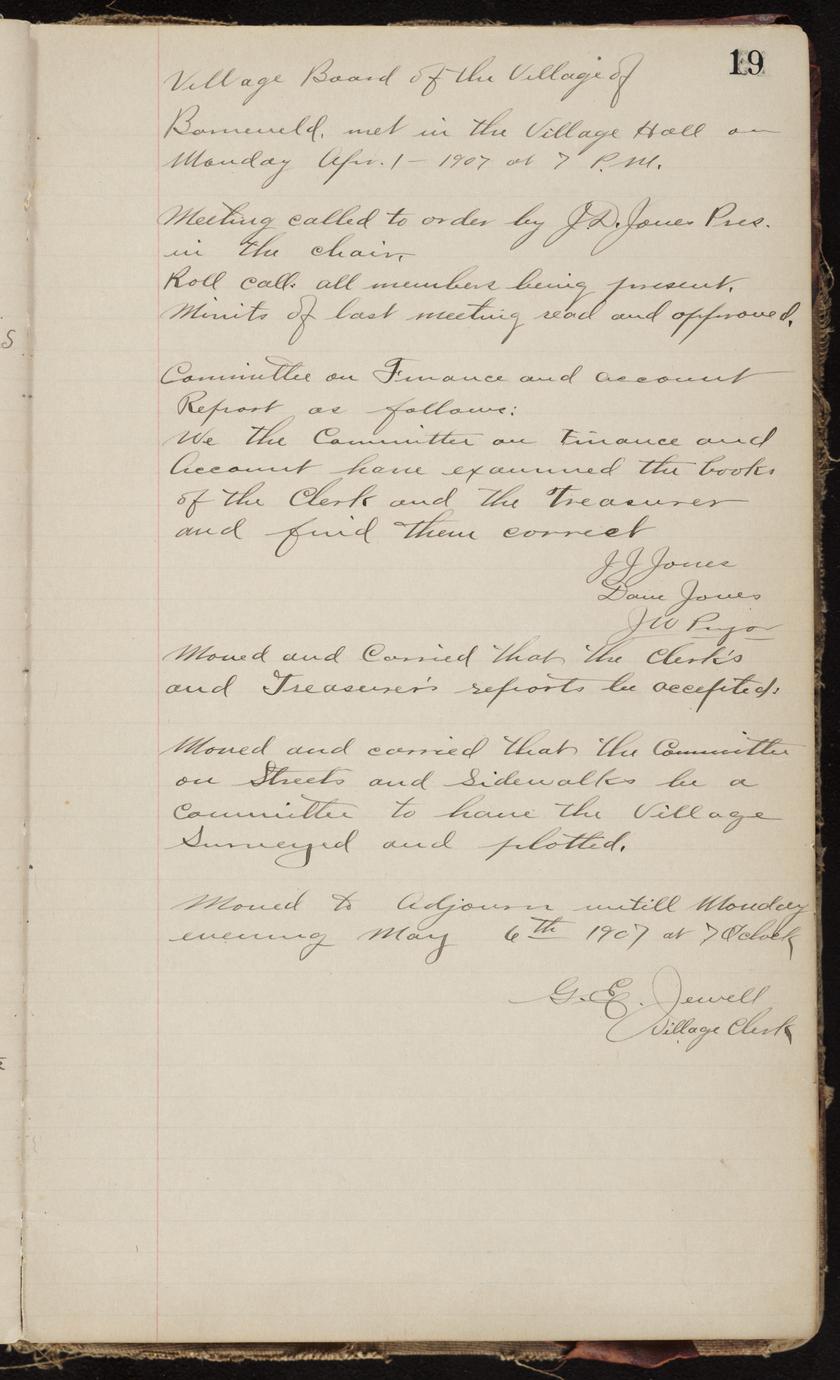 19
Village Board of the Village of
Barneveld, met in the Village Hall on
Monday Apr. 1 - 1907 at 7 P.M.
Meeting called to order by J.D. Jones Pres.
in the chair,
Roll call: all members being present.
Minits of last meeting read and approved.
S
Committee on Finance and account
Report as follows:
We the Committee on Finance and
Account have examined the books
of the Clerk and the Treasurer
and find them correct
J J Jones
Dave Jones
J W Pryor
Moved and Carried that the Clerk's
and Treasurer's reports be accepted:
Moved and carried that the Committee
on Streets and Sidewalks be a
Committee to have the Village
Surveyed and plotted.
Moved to Adjourn untill Monday
evening May 6th 1907 at 7 O'clock
G. E. Jewell
Village Clerk